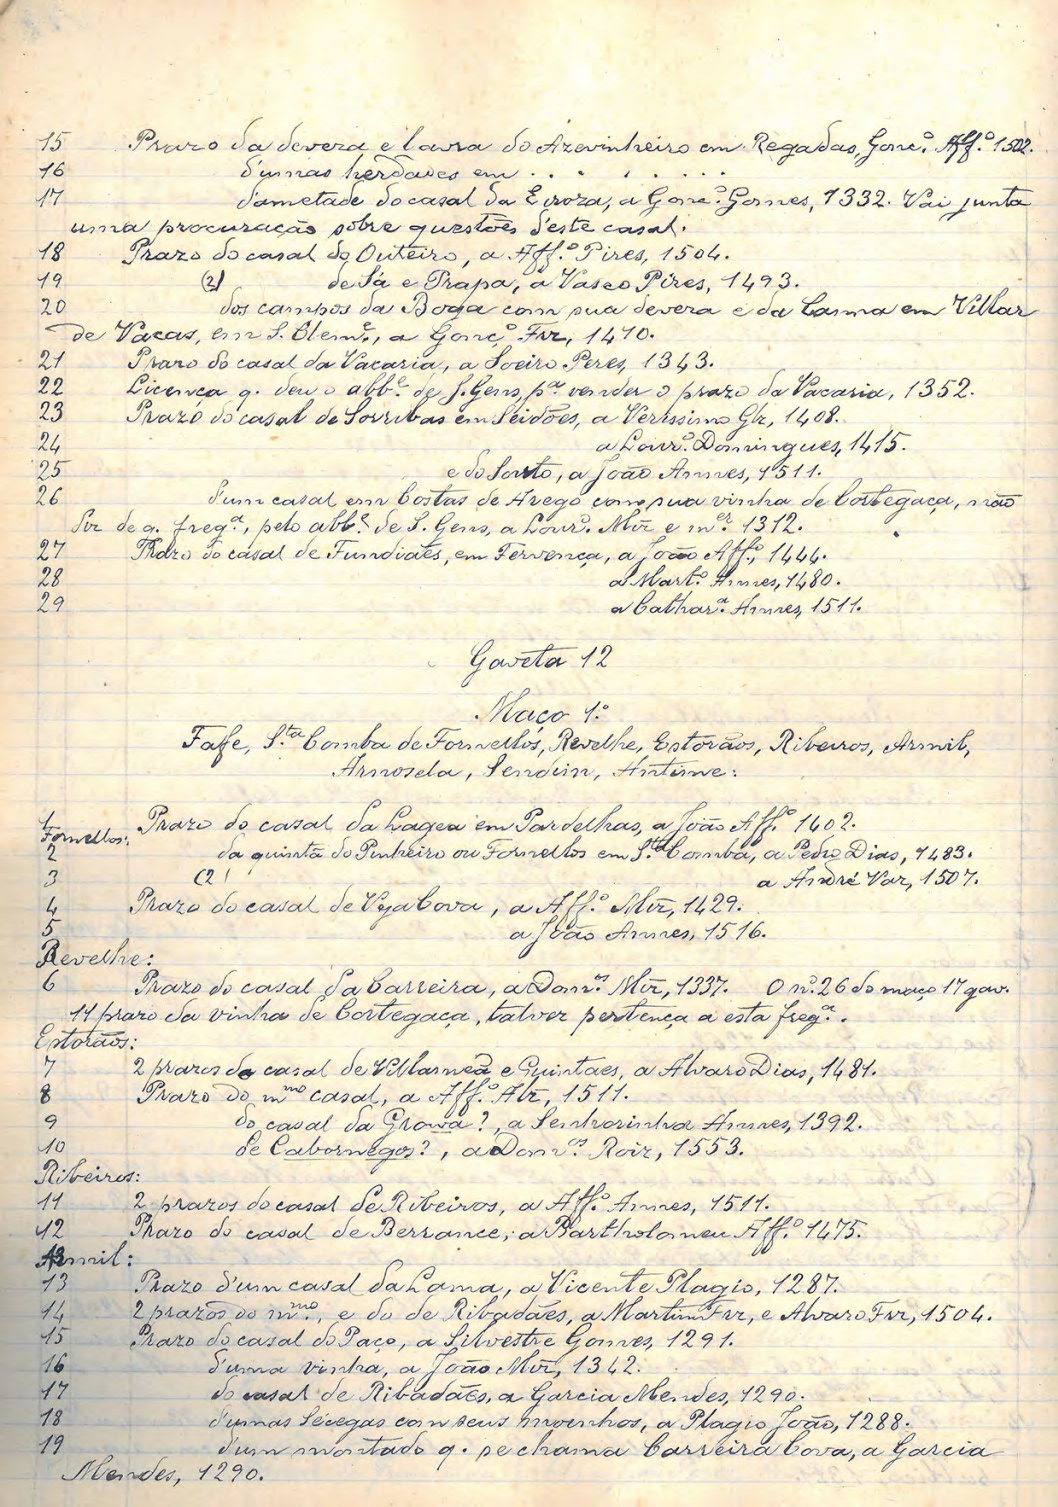 15 Prazo da devera e lavra do Azevinheiro em Regadas, Gonc.º Aff.º 1502.
16 d'umas herdades em . . . . . . .
17 d'ametade do casal da Eiroza, a Gonc.º Gomes, 1332. Vai junta
uma procuração sobre questões d'este casal.
18 Prazo do casal do Outeiro, a Aff.º Pires, 1504.
19 (2) de Sá e Trapa, a Vasco Pires, 1493.
20 dos campos da Boga com sua devera e da Cama em Villar
de Vacas, em S. Clem.e, a Gonç.º Frz, 1470.
21 Prazo do casal da Vacaria, a Soeiro Peres, 1343.
22 Licença q. deu o abb.e de S. Gens, p.a vender o prazo da Vacaria, 1352.
23 Prazo do casal de Sorribas em Seidões, a Verissimo Glz, 1408.
24 a Lour.º Domingues, 1415.
25 e do Souto, a João Annes, 1511.
26 d'um casal em Costas de Arego com sua vinha de Cortegaça, não
diz de q. freg.a, pelo abb.e de S. Gens, a Lour.º Mīz e m.er 1312.
27 Prazo do casal de Fundiães, em Fervença, a João Aff.º, 1444.
28 a Mart.º Annes, 1480.
29 a Cathar.a Annes, 1511.
Gaveta 12
Maço 1.º
Fafe, S.ta Comba de Fornellos, Revelhe, Estorãos, Ribeiros, Armil,
Arnosela, Sendim, Antime:
1 Prazo do casal da Lagea em Pardelhas, a João Aff.º 1402.
Fornellos:
2 da quinta do Pinheiro ou Fornellos em S.ta Comba, a Pedro Dias, 1483.
3 (2) a André Vaz, 1507.
4 Prazo do casal de Vya Cova, a Aff.º Mīz, 1429.
5 a João Annes, 1516.
Revelhe:
6 Prazo do casal da Carreira, a Dom.os Mīz, 1337. O n.º 26 do maço 17 gav.
11 prazo da vinha de Cortegaça, talvez pertença a esta freg.a.
Estorãos:
7 2 prazos do casal de Villarneã e Quintaes, a Alvaro Dias, 1481.
8 Prazo do m.mo casal, a Aff.º Alz, 1511.
9 do casal da Growa?, a Senhorinha Annes, 1392.
10 de Cabornegos?, a Dom.os Roiz, 1553.
Ribeiros:
11 2 prazos do casal de Ribeiros, a Aff.º Annes, 1511.
12 Prazo do casal de Berrance, a Bartholomeu Aff.º 1475.
Armil:
13 Prazo d'um casal da Lama, a Vicente Plagio, 1287.
14 2 prazos do m.mo, e do de Ribadães, a Martim Frz, e Alvaro Frz, 1504.
15 Prazo do casal do Paço, a Silvestre Gomes, 1291.
16 d'uma vinha, a João Mīz, 1342.
17 do casal de Ribadães, a Garcia Mendes, 1290.
18 d'umas sécegas com seus moinhos, a Plagio João, 1288.
19 d'um montado q. se chama Carreira Cova, a Garcia
Mendes, 1290.